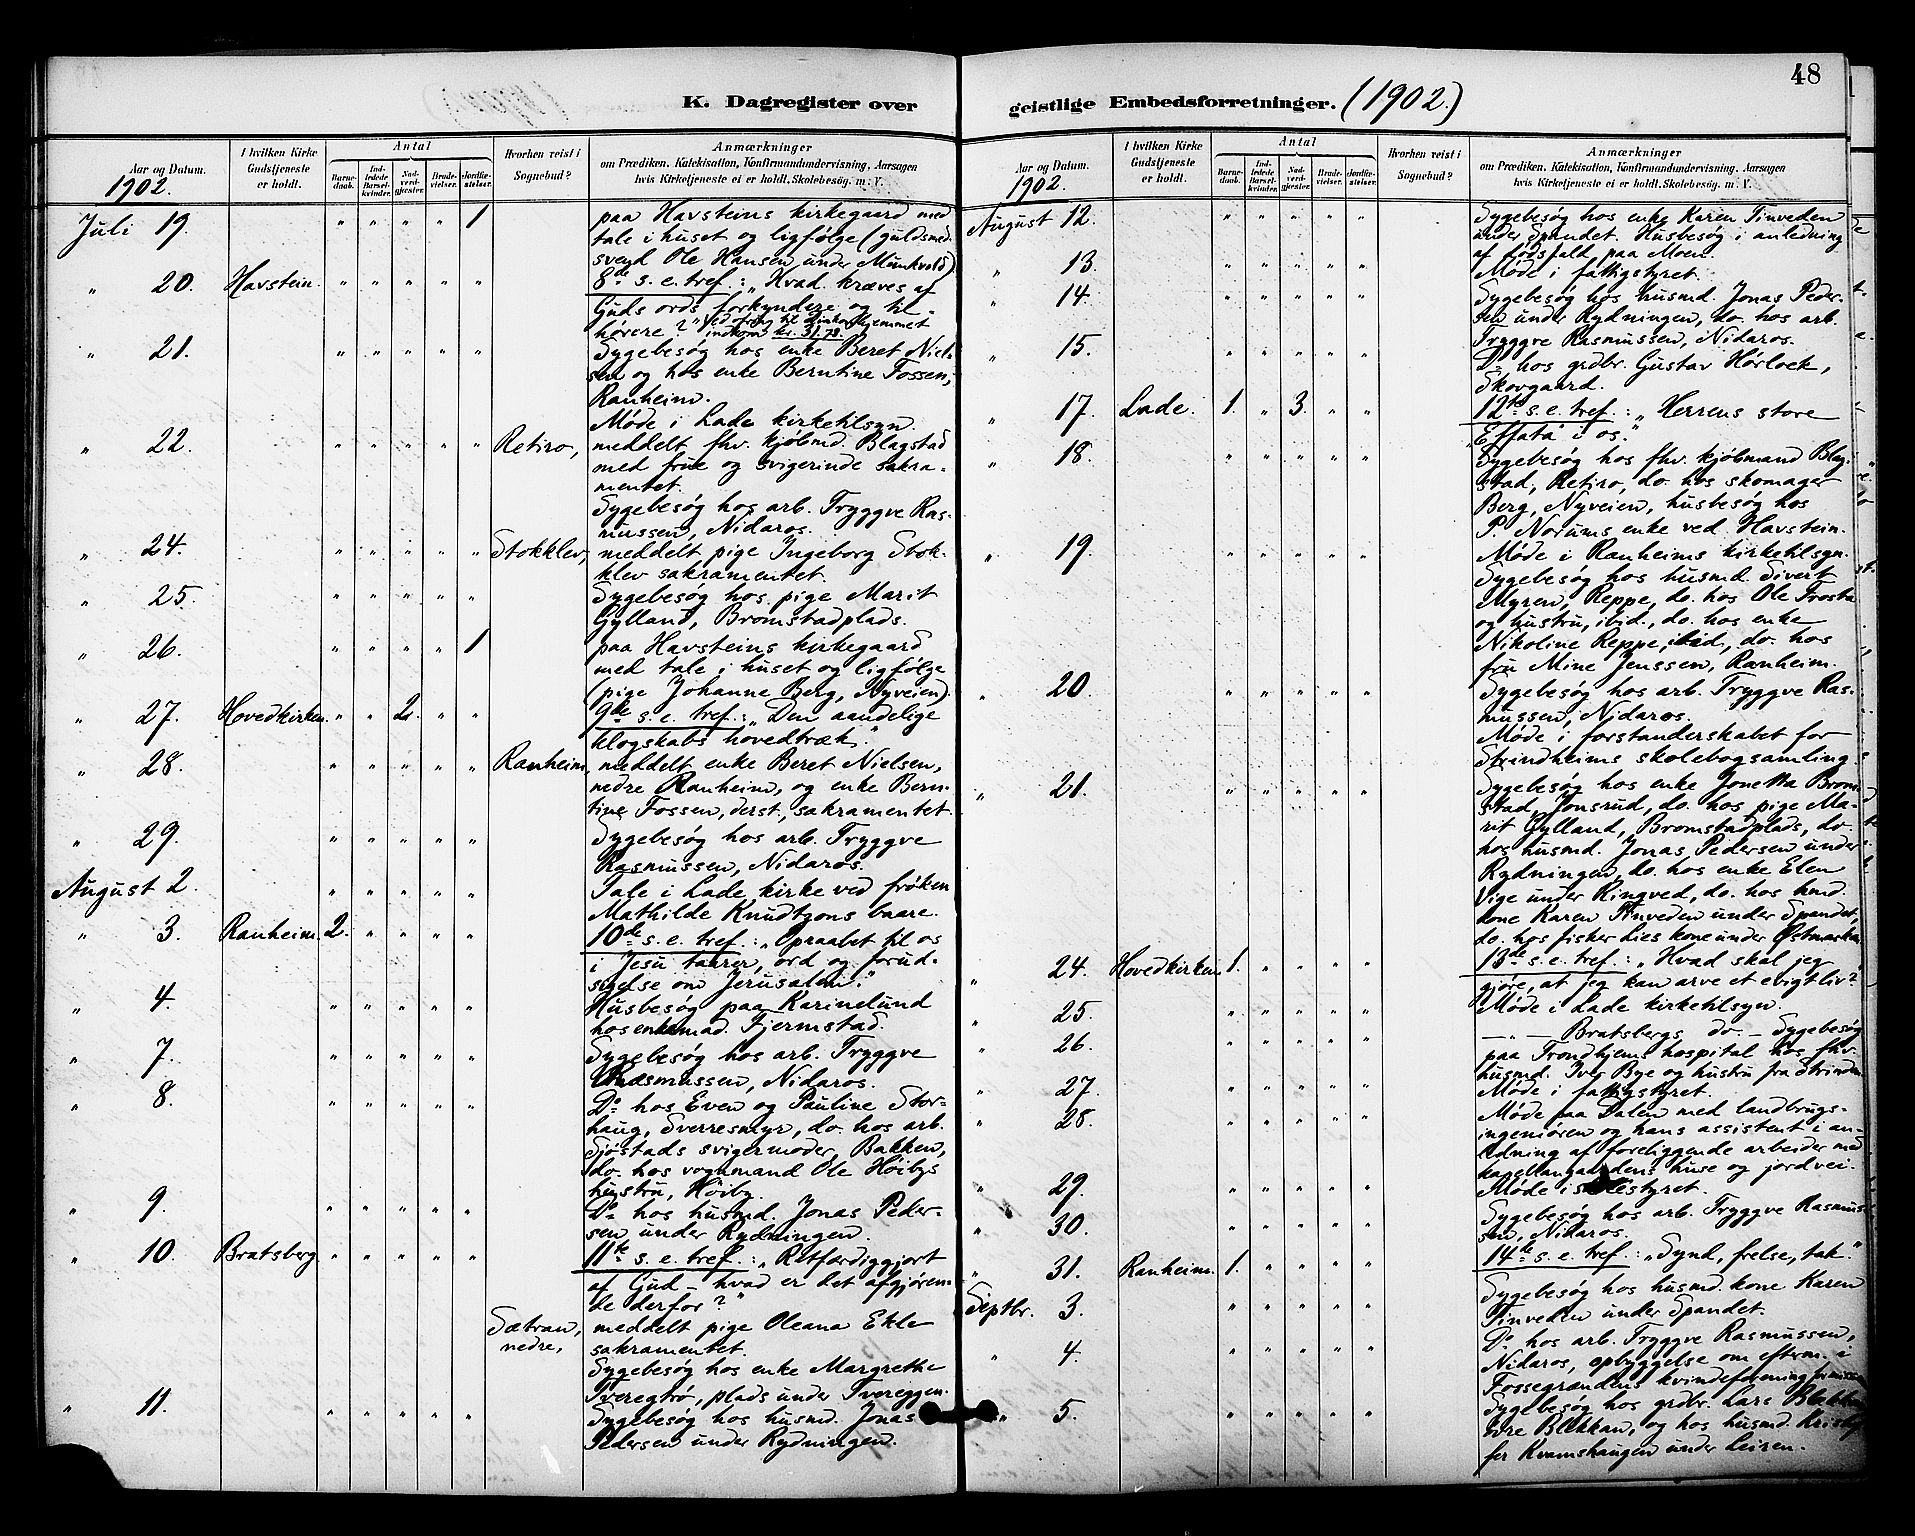 48
K. Dagregister over
Aar og Datum.
1902.
I hvilken Kirke Gudstjeneste er holdt.
Antal
Barnedaab.
Indledede Barselkvinder.
Nadverdgjester.
Brudevielser.
Jordfæstelser.
Hvorhen reist i Sognebud?
Anmærkninger
om Prædiken, Katekisation, Konfirmandundervisning, Aarsagen
hvis Kirketjeneste ei er holdt, Skolebesøg m. V.
Juli 19. " " " " 1 paa Havsteins kirkegaard med
tale i huset og ligfølge (guldsmed-
svend Ole Hansen under Munkvold)
" 20. Havstein. " " " " " 8de s. e. tref.: „Hvad kræves af
Guds ords forkyndere og til-
hørere?" Ved ofring til diakonhjemmet
indkom kr. 31,78.
" 21. " " " " " Sygebesøg hos enke Beret Niel-
sen og hos enke Berntine Fossen,
Ranheim.
Møde i Lade kirketilsyn.
" 22. " " " " " Retiro, meddelt fhv. kjøbmd. Blagstad
med frue og svigerinde sakra-
mentet.
Sygebesøg hos arb. Tryggve Ras-
mussen, Nidaros.
" 24. " " " " " Stokklev, meddelt pige Ingeborg Stok-
klev sakramentet.
" 25. " " " " " Sygebesøg hos pige Marit
Gylland, Bromstadplads.
" 26. " " " " 1 paa Havsteins kirkegaard
med tale i huset og ligfølge
(pige Johanne Berg, Nyveien).
" 27. Hovedkirken. " " 2. " " 9de s. e. tref.: „Den aandelige
klogskabs hovedtræk."
" 28. " " " " " Ranheim, meddelt enke Beret Nielsen,
nedre Ranheim, og enke Bern-
tine Fossen, derst., sakramentet.
" 29. " " " " " Sygebesøg hos arb. Tryggve
Rasmussen, Nidaros.
August 2. " " " " " Tale i Lade kirke ved frøken
Mathilde Knudtzons baare.
" 3. Ranheim. 2. " " " " 10de s. e. tref.: „Opraabet til os
i Jesu taarer, ord og forud-
sigelse om Jerusalem."
" 4. " " " " " Husbesøg paa Karinelund
hos enkemad. Fjermstad.
" 7. " " " " " Sygebesøg hos arb. Tryggve
Rasmussen, Nidaros.
" 8. " " " " " Do hos Even og Pauline Stor-
haug, Sverresmyr, do. hos arb.
Sjøstads svigermoder, Bakken,
do. hos vognmand Ole Høibys
hustru, Høiby.
" 9. " " " " " Do hos husmd. Jonas Peder-
sen under Rydningen.
" 10. Bratsberg. " " " " " 11te s. e. tref.: „Retfærdiggjort
af Gud – hvad er det afgjøren-
de derfor?"
Sætran, nedre, meddelt pige Oleana Ekle
sakramentet.
Sygebesøg hos enke Margrethe
Tveregtrø, plads under Tvereggen.
" 11. " " " " " Sygebesøg hos husmd. Jonas
Pedersen under Rydningen.
geistlige Embedsforretninger. (1902.)
Aar og Datum.
1902.
I hvilken Kirke Gudstjeneste er holdt.
Antal
Barnedaab.
Indledede Barselkvinder.
Nadverdgjester.
Brudevielser.
Jordfæstelser.
Hvorhen reist i Sognebud?
Anmærkninger
om Prædiken, Katekisation, Konfirmandundervisning, Aarsagen
hvis Kirketjeneste ei er holdt, Skolebesøg m. V.
August 12. " " " " " Sygebesøg hos enke Karen Tinveden
under Spandet. Husbesøg i anledning
af dødsfald paa Moen.
" 13. " " " " " Møde i fattigstyret.
" 14. " " " " " Sygebesøg hos husmd. Jonas Peder-
sen under Rydningen, do. hos arb.
Tryggve Rasmussen, Nidaros.
" 15. " " " " " Do hos grdbr. Gustav Hørlock,
Skovgaard.
" 17. Lade. 1. " 3. " " 12te s. e. tref.: „Herrens store
„Effata" i os."
" 18. " " " " " Sygebesøg hos fhv. kjøbmand Blag-
stad, Retiro, do. hos skomager
Berg, Nyveien, husbesøg hos
P. Norums enke ved Havstein.
" 19. " " " " " Møde i Ranheims kirketilsyn.
Sygebesøg hos husmd. Sivert
Myren, Reppe, do. hos Ole Trosta
og hustru, ibid., do. hos enke
Nikoline Reppe, ibid., do. hos
fru Mine Jenssen, Ranheim.
" 20. " " " " " Sygebesøg hos arb. Tryggve Ras-
mussen, Nidaros.
Møde i forstanderskabet for
Strindheims skolebogsamling.
" 21. " " " " " Sygebesøg hos enke Jonetta Brom-
stad, Jonsrud, do. hos pige Ma-
rit Gylland, Bromstadplads, do.
hos husmd. Jonas Pedersen under
Rydningen, do. hos enke Elen
Vige under Ringved, do. hos hmd.
kone Karen Tinveden under Spandet,
do. hos fisker Lies kone under Østmarken
" 24. Hovedkirken 1. " " " " 13de s. e. tref.: „Hvad skal jeg
gjøre, at jeg kan arve et evigt liv?"
" 25. " " " " " Møde i Lade kirketilsyn.
" 26. " " " " " — " — Bratsbergs do. – Sygebesøg
paa Trondhjems hospital hos fhv.
husmd. Iver Bye og hustru fra Strinden
" 27. " " " " " Møde i fattigstyret.
" 28. " " " " " Møde paa Dalen med landbrugs-
ingeniøren og hans assistent i an-
ledning af foreliggende arbeider med
kapellangaardens huse og jordvei.
" 29. " " " " " Møde i skolestyret.
" 30. " " " " " Sygebesøg hos arb. Tryggve Rasmus-
sen, Nidaros.
" 31. Ranheim. 1. " " " " 14te s. e. tref.: „Synd, frelse, tak."
Septbr. 3. " " " " " Sygebesøg hos husmd. kone Karen
Tinveden under Spandet.
" 4. " " " " " Do hos arb. Tryggve Rasmussen,
Nidaros, opbyggelse om efterm. i
Fossegrændens kvindeforening for missi
" 5. " " " " " Sygebesøg hos grdbr. Lars Blekkan
øvre Blekkan, og hos husmd. Kristof-
fer Kvamshaugen under Leiren.